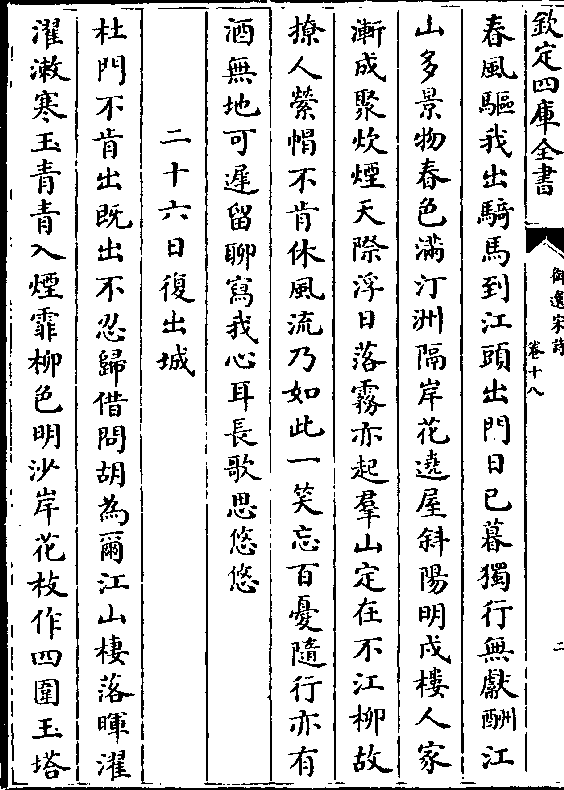 欽定四庫全書
御選宋詩
卷十八
二
春風驅我出騎馬到江頭出門日已暮獨行無獻酬江
山多景物春色滿汀洲隔岸花遶屋斜陽明戍樓人家
漸成聚炊煙天際浮日落霧亦起羣山定在不江柳故
撩人縈帽不肯休風流乃如此一笑忘百憂隨行亦有
酒無地可遲留聊寫我心耳長歌思悠悠
二十六日復出城
杜門不肯出既出不忍歸借問胡為爾江山棲落暉濯
濯漱寒玉青青入煙霏柳色明沙岸花枝作四圍玉塔